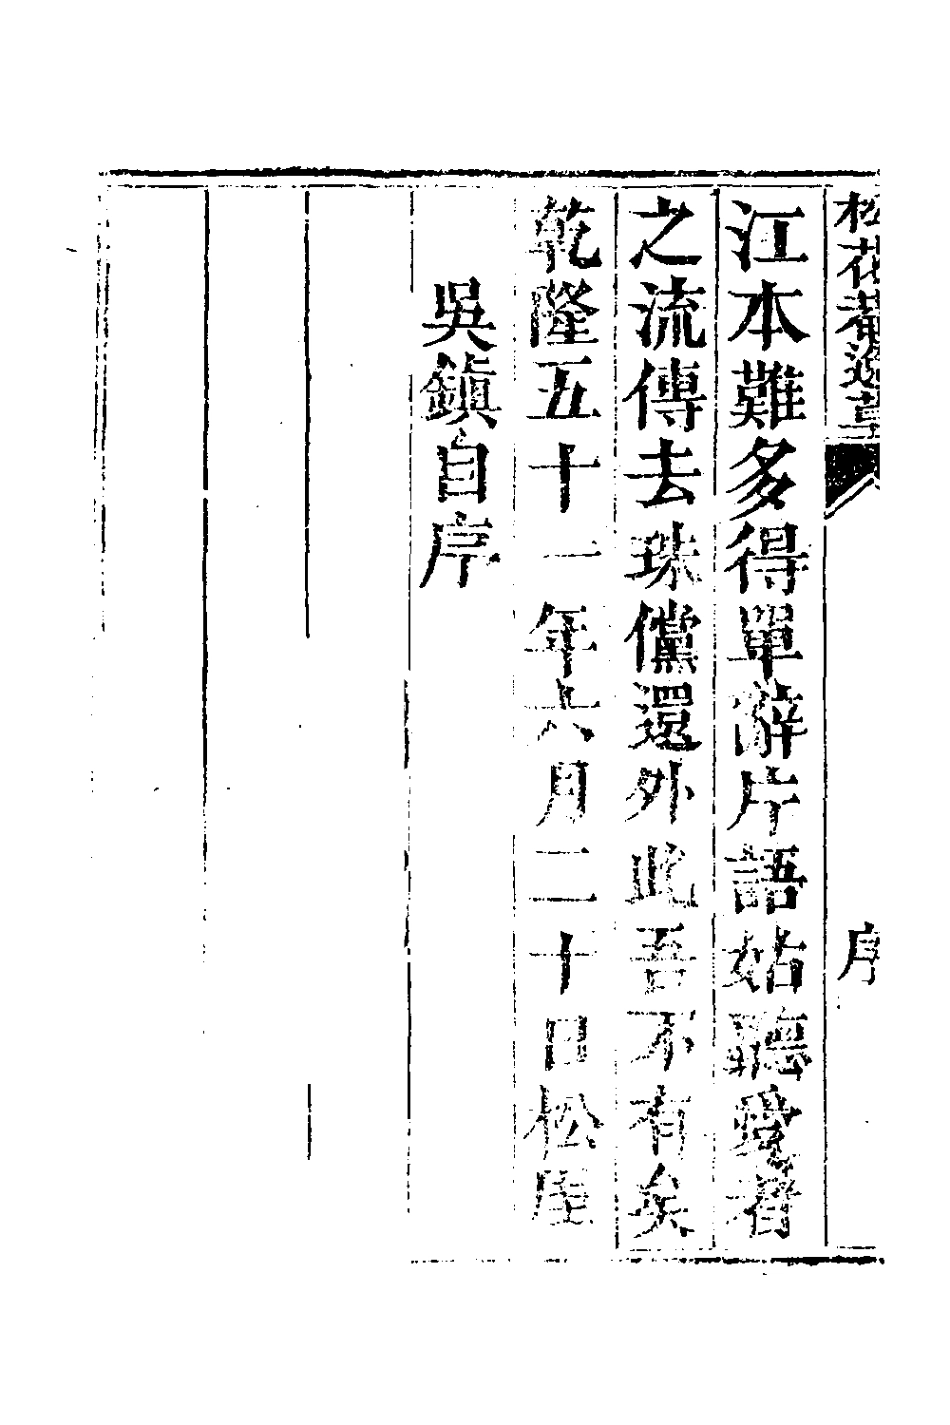 松花菴逸草
序
江本難多得單辭片語姑聽愛者
之流傳去珠儻還外此吾不有矣
乾隆五十一年六月二十日松厓
吳鎮自序